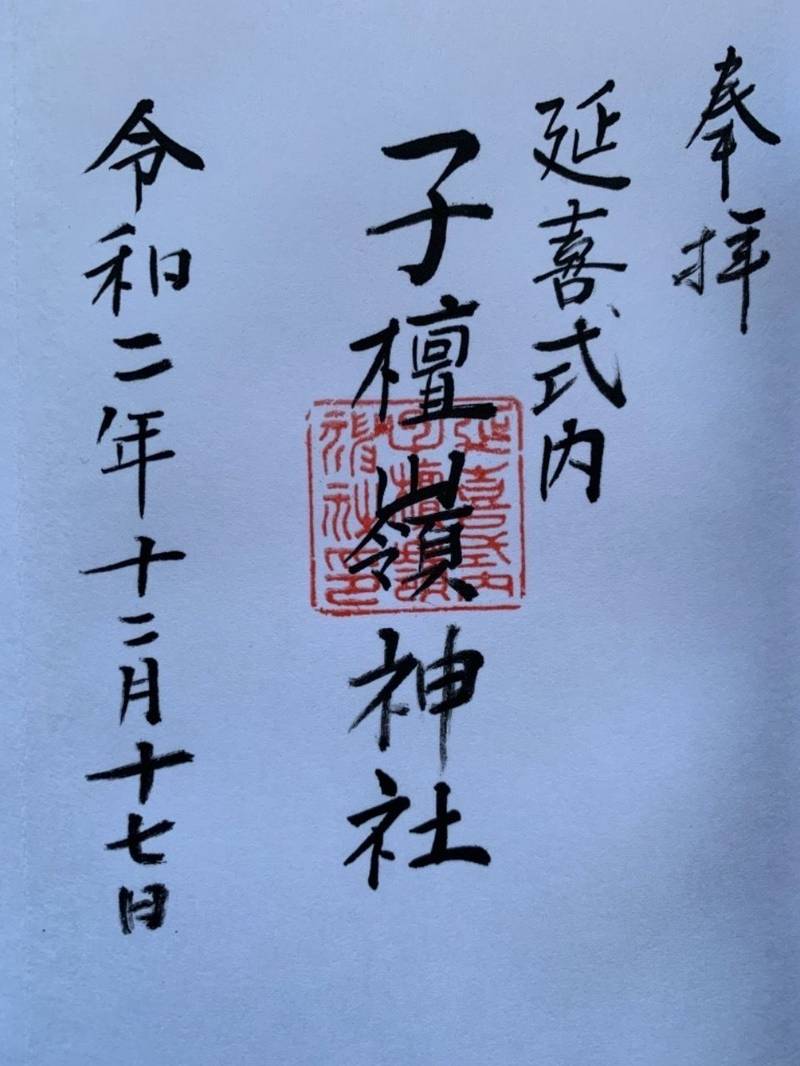 奉拝
延喜式内
子檀嶺神社
令和二年十二月十七日
延喜式内
子檀嶺
神社印